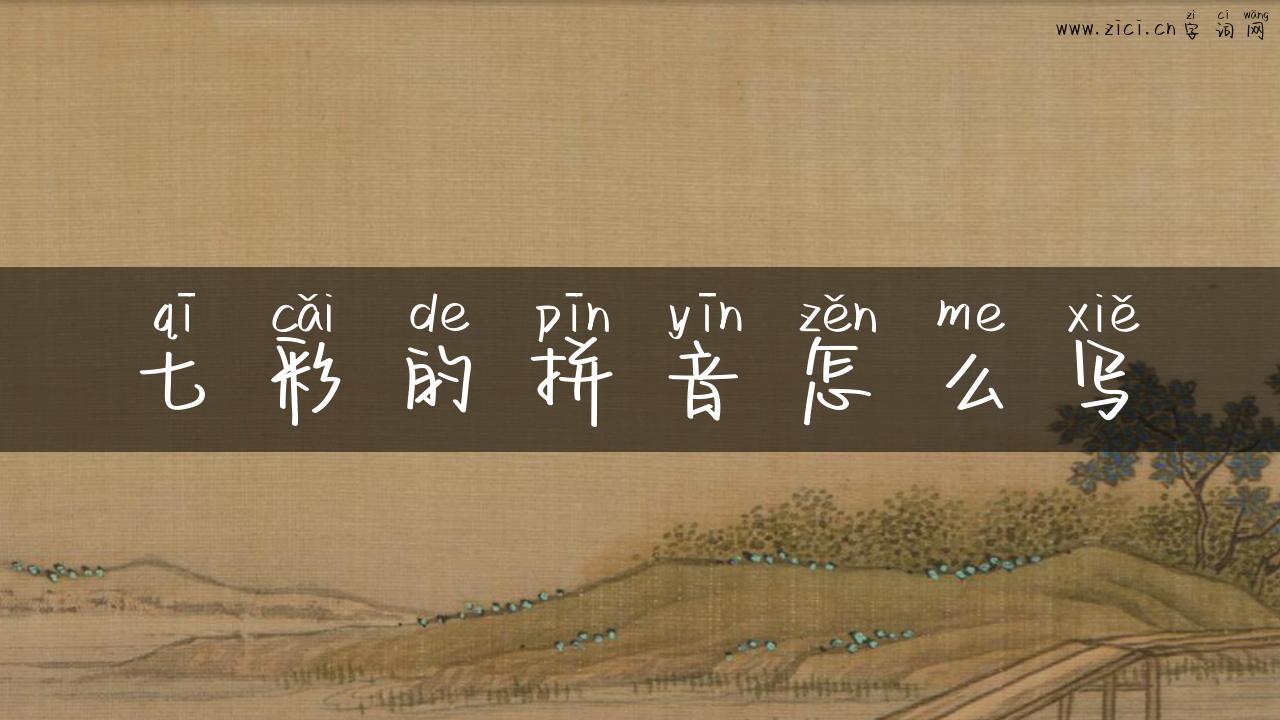 zì cí wǎng
www.zici.cn 字词网
qī cǎi de pīn yīn zěn me xiě
七彩的拼音怎么写